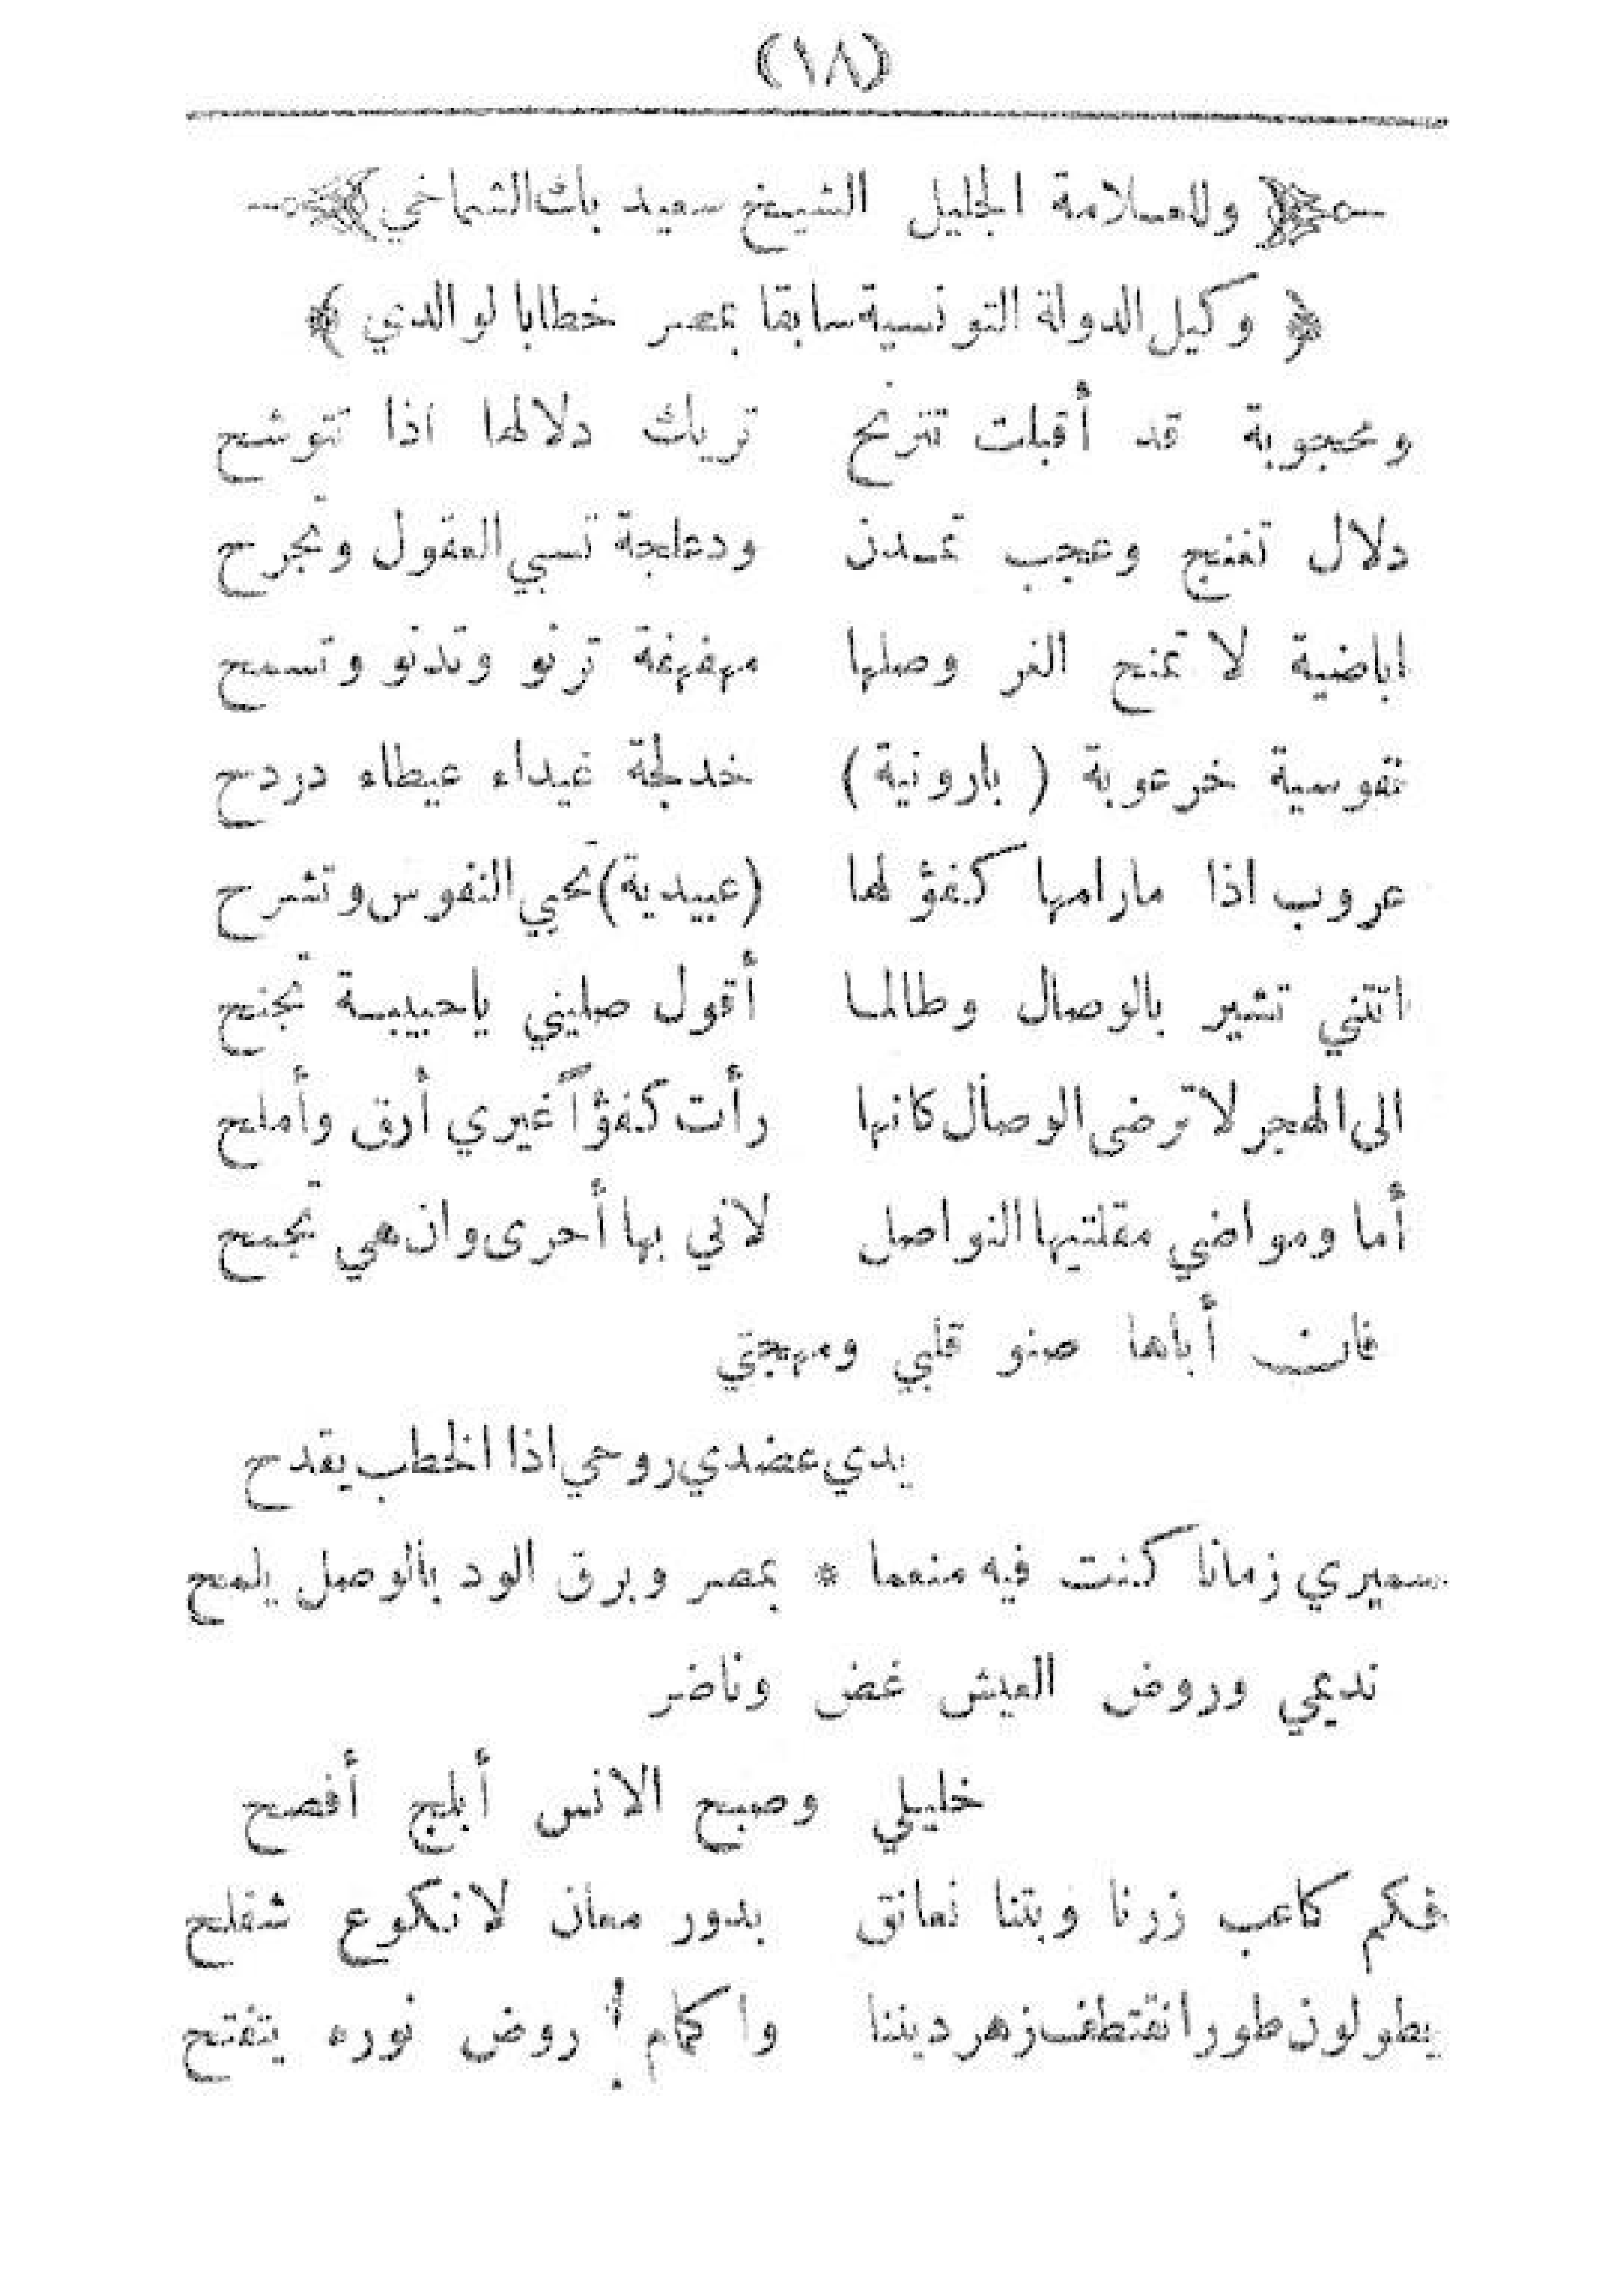 (١٨)
﴿ وللعلامة الجليل الشيخ سعيد بك الشماخي ﴾
﴿ وكيل الدولة التونسية سابقا بمصر خطابا لوالدي ﴾
ومحجوبة قد أقبلت تترنح تريك دلالها اذا تتوشح
دلال تغنج وعجب تمدن ودعلجة تسبي العقول وتجرح
اباضية لا تمنح الغر وصلها مهفهفة ترنو وتدنو وتسمح
نفوسية خرعوبة (بارونية) خدلجة غيداء عيطاء دردح
عروب اذا مارامها كفؤ لها (عبيدية) تحيي النفوس وتشرح
اتتني تشير بالوصال وطالما أقول صليني ياحبيبة تجنح
الى الهجر لا ترضى الوصال كانها رأت كفؤاً غيري أرق وأملح
أما ومواضي مقلتيها النواصل لاني بها أحرى وان هي تجمح
فان أباها صنو قلبي ومهجتي
يدي عضدي روحي اذا الخطب يقدح
سميري زمانا كنت فيه منعما * بمصر وبرق الود بالوصل يلمح
نديمي وروض العيش غض وناضر
خليلي وصبح الانس أبلج أفصح
فكم كاعب زرنا وبتنا نعانق بدور معان لانكوع شفلح
يطولون طورا نقتطف زهر ديننا واكمام روض نوره يتفتح